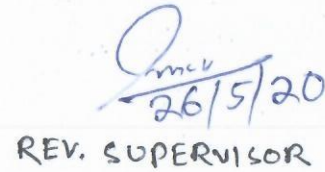 26/5/20
REV. SUPERVISOR